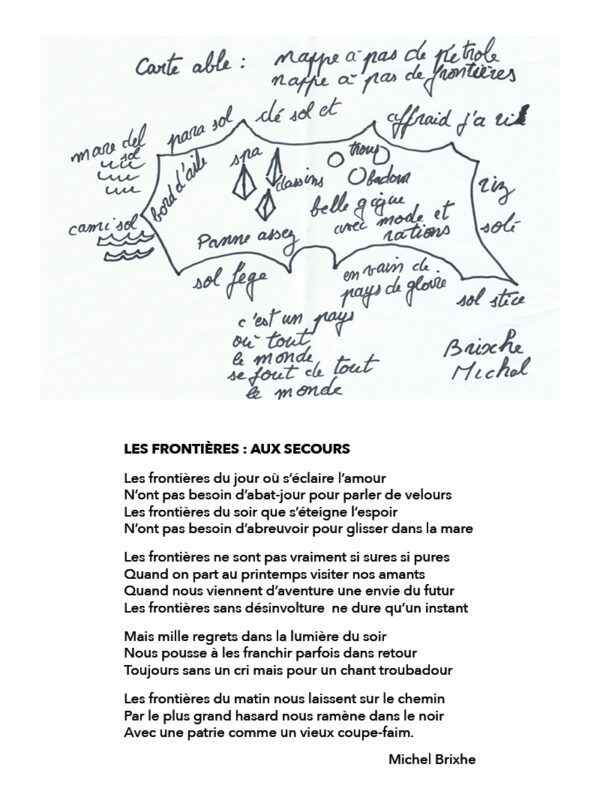 Carte able : nappe à pas de pétrole
nappe à pas de frontières
para sol
clé sol et
affraid j'a
mare del
sol
bord d'aile
spa
dassins
trou
badour
riz
solé
cami sol
belle gigue
avec mode et
rations
Panne assez
sol fège
en vain de
pays de gloire
sol stice
c'est un pays
où tout
le monde
se fout de tout
le monde
Brixhe
Michel
LES FRONTIÈRES : AUX SECOURS
Les frontières du jour où s’éclaire l’amour
N’ont pas besoin d’abat-jour pour parler de velours
Les frontières du soir que s’éteigne l’espoir
N’ont pas besoin d’abreuvoir pour glisser dans la mare
Les frontières ne sont pas vraiment si sures si pures
Quand on part au printemps visiter nos amants
Quand nous viennent d’aventure une envie du futur
Les frontières sans désinvolture ne dure qu’un instant
Mais mille regrets dans la lumière du soir
Nous pousse à les franchir parfois dans retour
Toujours sans un cri mais pour un chant troubadour
Les frontières du matin nous laissent sur le chemin
Par le plus grand hasard nous ramène dans le noir
Avec une patrie comme un vieux coupe-faim.
Michel Brixhe